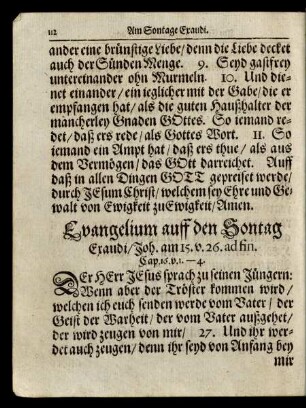 112 Am Sontage Exaudi.
ander eine brünstige Liebe/ denn die Liebe decket
auch der Sünden Menge. 9. Seyd gastfrey
untereinander ohn Murmeln. 10. Und die-
net einander/ ein ieglicher mit der Gabe/ die er
empfangen hat/ als die guten Haußhalter der
mancherley Gnaden GOttes. So iemand re-
det/ daß ers rede/ als Gottes Wort. 11. So
iemand ein Ampt hat/ daß ers thue/ als aus
dem Vermögen/ das GOtt darreichet. Auff
daß in allen Dingen GOTT gepreiset werde/
durch JEsum Christ/ welchem sey Ehre und Ge-
walt von Ewigkeit zu Ewigkeit/ Amen.
Evangelium auff den Sontag
Exaudi/ Joh. am 15. v. 26. ad fin.
Cap. 16. v. 1. — 4.
DEr HErr JEsus sprach zu seinen Jüngern:
Wenn aber der Tröster kommen wird/
welchen ich euch senden werde vom Vater/ der
Geist der Warheit/ der vom Vater außgehet/
der wird zeugen von mir/ 27. Und ihr wer-
det auch zeugen/ denn ihr seyd von Anfang bey
mir